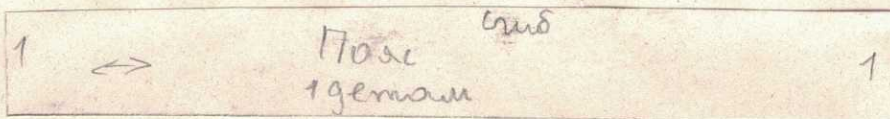 сгиб
1 ↔ Пояс 1
1 детал